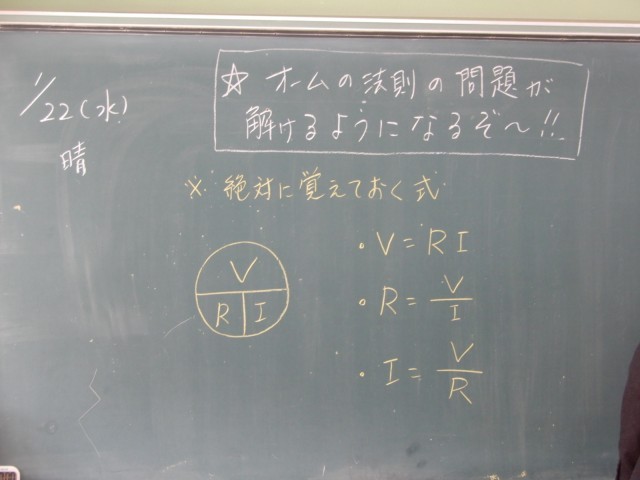 1/22(水)
晴
☆ オームの法則の問題が
解けるようになるぞ〜!!
※ 絶対に覚えておく式
V
R I
・V = RI
・R = V/I
・I = V/R